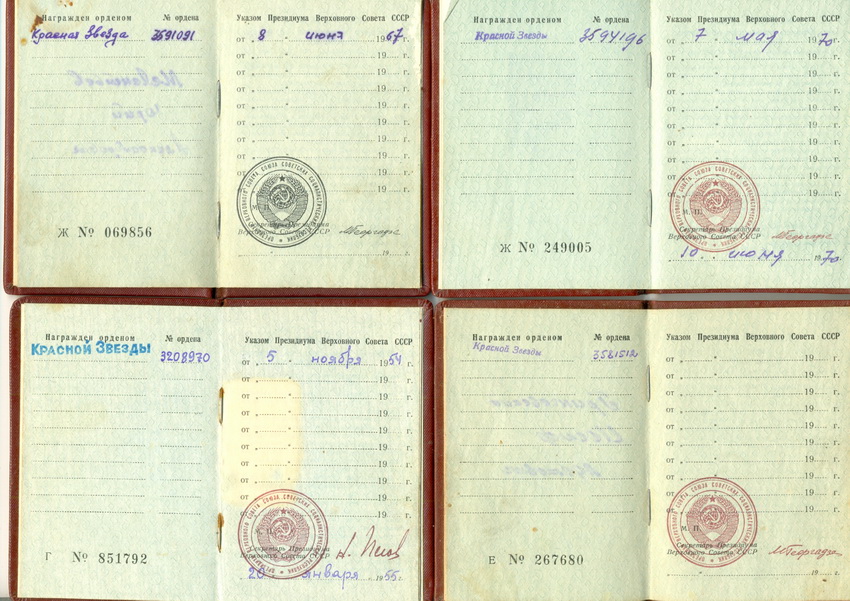 Награжден орденом № ордена
Красная Звезда 3591091
Ж № 069856
Указом Президиума Верховного Совета СССР
от „ 8 “ июня 1967 г.
от „ “ 19 г.
от „ “ 19 г.
от „ “ 19 г.
от „ “ 19 г.
от „ “ 19 г.
от „ “ 19 г.
от „ “ 19 г.
от „ “ 19 г.
М. П.
Секретарь Президиума
Верховного Совета СССР
19 г.
Награжден орденом № ордена
Красной Звезды 3594196
Ж № 249005
Указом Президиума Верховного Совета СССР
от „ 7 “ мая 1970 г.
от „ “ 19 г.
от „ “ 19 г.
от „ “ 19 г.
от „ “ 19 г.
от „ “ 19 г.
от „ “ 19 г.
от „ “ 19 г.
от „ “ 19 г.
М. П.
Секретарь Президиума
Верховного Совета СССР
10 июня 1970 г.
Награжден орденом № ордена
КРАСНОЙ ЗВЕЗДЫ 3208970
Г № 851792
Указом Президиума Верховного Совета СССР
от „ 5 “ ноября 1954 г.
от „ “ 19 г.
от „ “ 19 г.
от „ “ 19 г.
от „ “ 19 г.
от „ “ 19 г.
от „ “ 19 г.
от „ “ 19 г.
от „ “ 19 г.
Секретарь Президиума
Верховного Совета СССР
20 января 1955 г.
Награжден орденом № ордена
Красной Звезды 3581512
Е № 267680
Указом Президиума Верховного Совета СССР
от „ “ 19 г.
от „ “ 19 г.
от „ “ 19 г.
от „ “ 19 г.
от „ “ 19 г.
от „ “ 19 г.
от „ “ 19 г.
от „ “ 19 г.
от „ “ 19 г.
М. П.
Секретарь Президиума
Верховного Совета СССР
19 г.